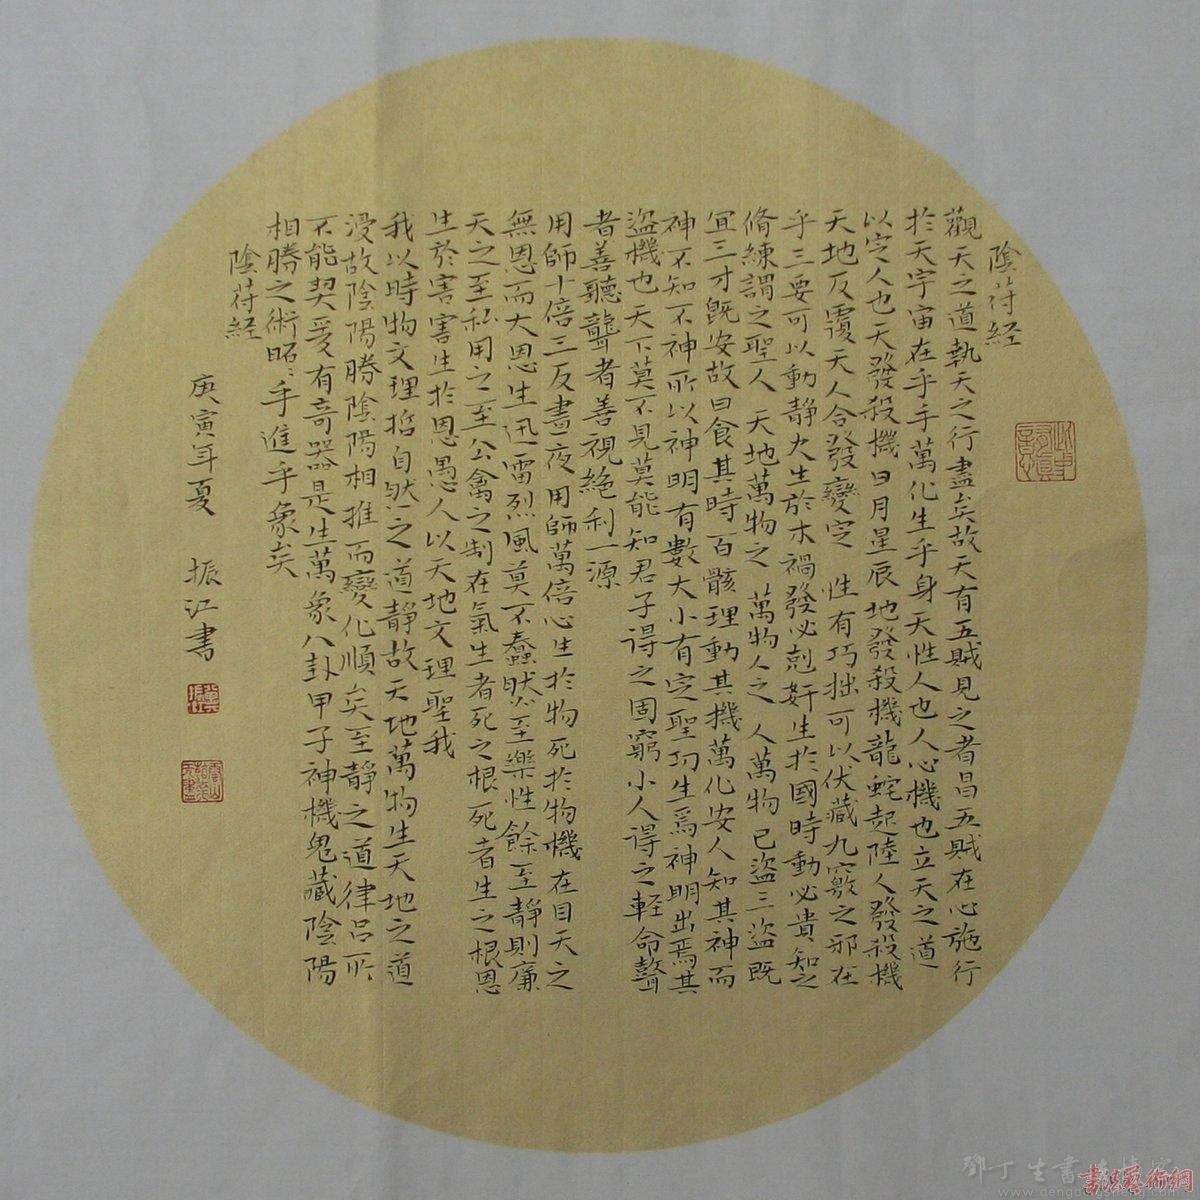 陰符経
觀天之道執天之行盡矣故天有五賊見之者昌五賊在心施行
於天宇宙在乎手萬化生乎身天性人也人心機也立天之道
以定人也天發殺機日月星辰地發殺機龍蛇起陸人發殺機
天地反覆天人合發變定 性有巧拙可以伏藏九竅之邪在
乎三要可以動靜火生於木禍發必剋奸生於國時動必貴知之
脩練謂之聖人 天地萬物之 萬物人之 人萬物 已盜三盜既
宜三才既安故曰食其時百骸理動其機萬化安人知其神而
神不知不神所以神明有數大小有定聖功生焉神明出焉其
盜機也天下莫不見莫能知君子得之固窮小人得之輕命瞽
者善聽聾者善視絶利一源
用師十倍三反晝夜用師萬倍心生於物死於物機在目天之
無恩而大恩生迅雷烈風莫不蠢然至樂性餘至靜則廉
天之至私用之至公禽之制在氣生者死之根死者生之根恩
生於害害生於恩愚人以天地文理聖我
我以時物文理哲自然之道靜故天地萬物生天地之道
浸故陰陽勝陰陽相推而變化順矣至靜之道律呂所
不能契爰有奇器是生萬象八卦甲子神機鬼藏陰陽
相勝之術昭：乎進乎象矣
陰符経
庚寅年夏 振江書
書法藝術網